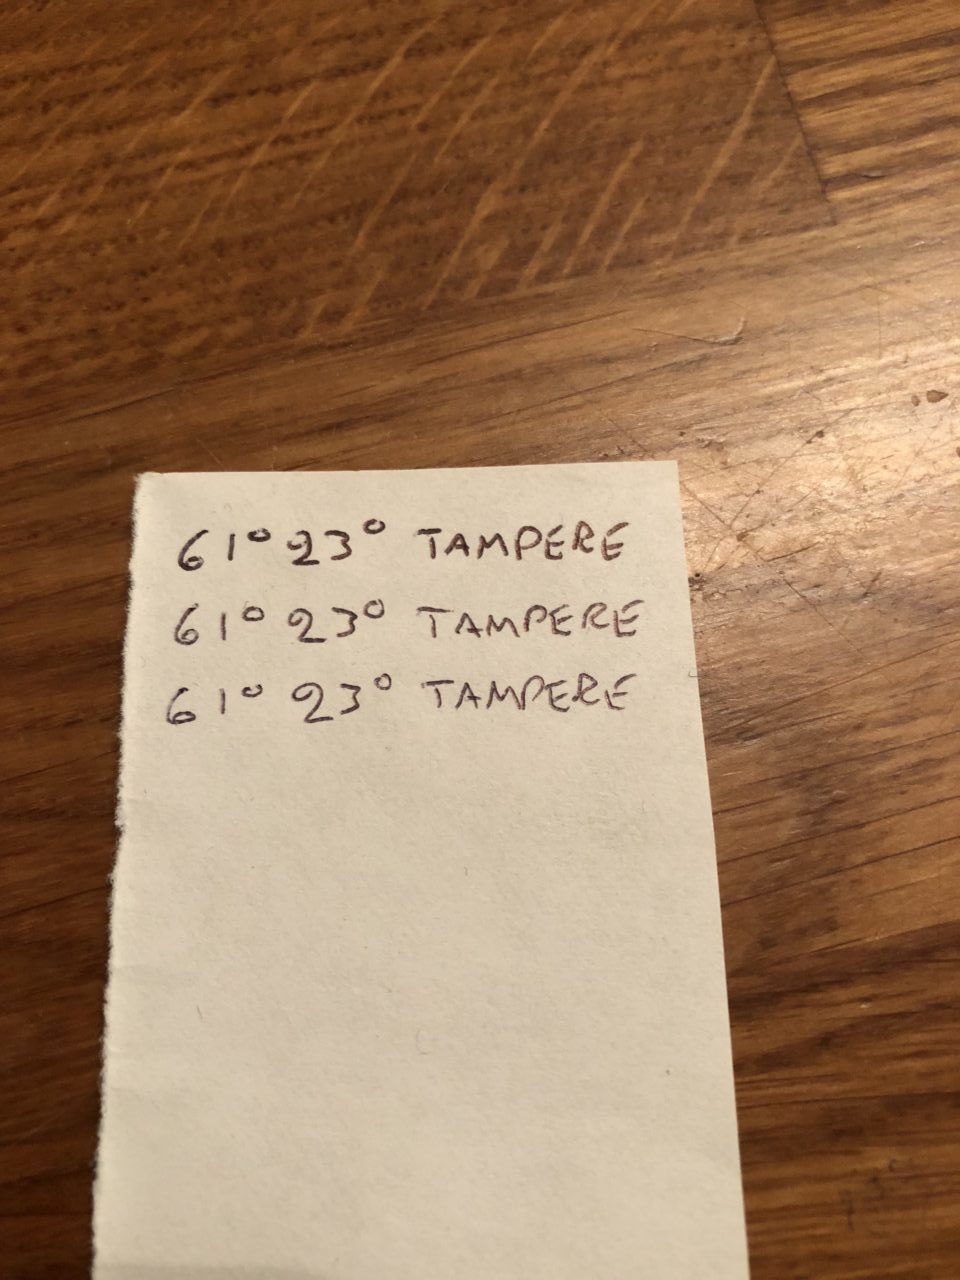 61° 23° TAMPERE
61° 23° TAMPERE
61° 23° TAMPERE